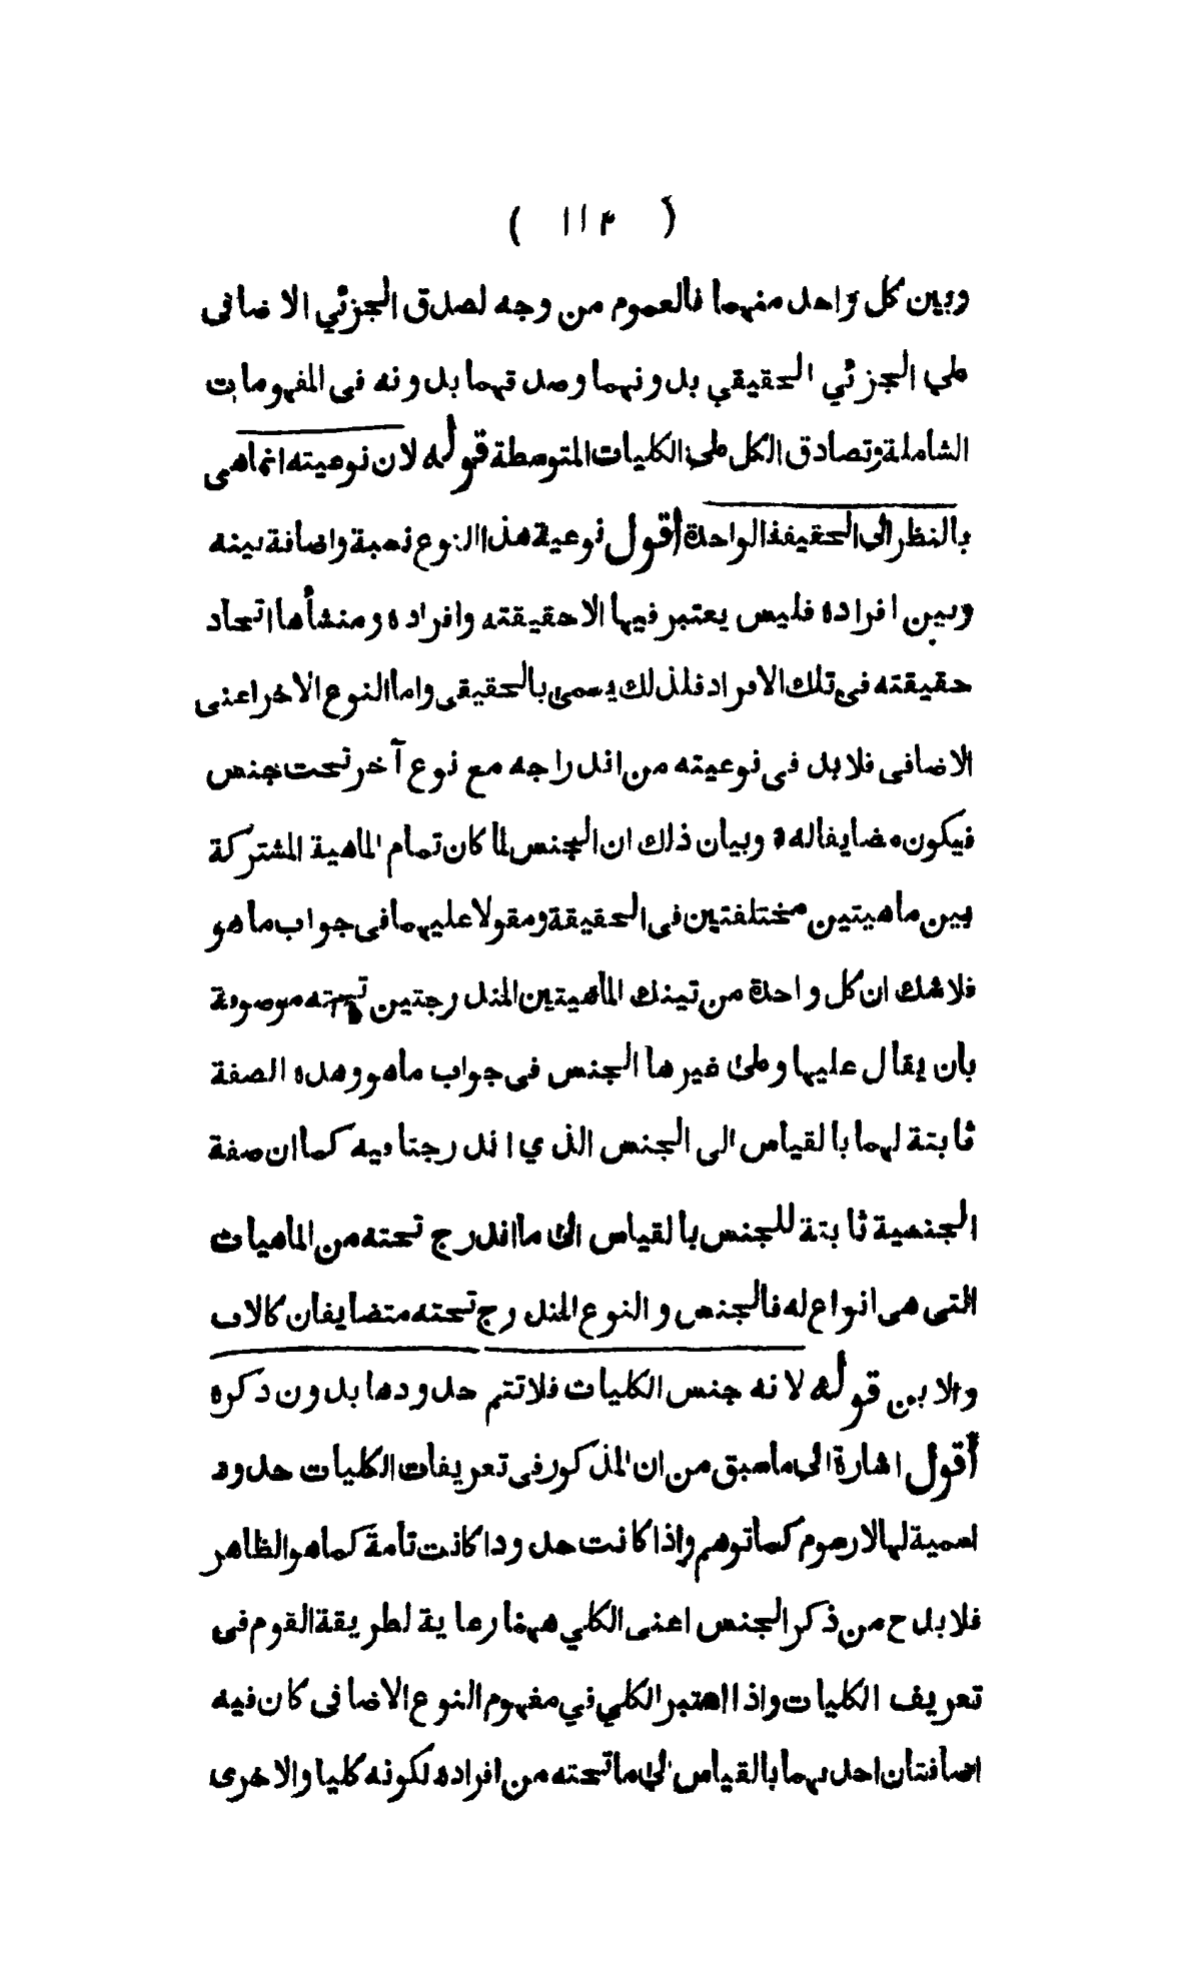 ( ١١٢ )
وبين كل واحد منهما فالعموم من وجه لصدق الجزئي الاضافى
على الجزئي الحقيقي بدونهما وصدقهما بدونه فى المفهومات
الشاملة وتصادق الكل على الكليات المتوسطة قوله لان نوعيته انما هى
بالنظر الى الحقيقة الواحدة أقول نوعية هذا النوع نسبة واضافة بينه
وبين افراده فليس يعتبر فيها الا حقيقته وافراده ومنشأها اتحاد
حقيقته فى تلك الافراد فلذلك يسمى بالحقيقى واما النوع الاخر اعنى
الاضافى فلا بد فى نوعيته من اندراجه مع نوع آخر تحت جنس
فيكون مضايفا له وبيان ذلك ان الجنس لما كان تمام الماهية المشتركة
بين ماهيتين مختلفتين فى الحقيقة ومقولا عليهما فى جواب ما هو
فلا شك ان كل واحدة من تينك الماهيتين المندرجتين تحته موصوفة
بان يقال عليها وعلى غيرها الجنس فى جواب ما هو وهذه الصفة
ثابتة لهما بالقياس الى الجنس الذي اندرجتا فيه كما ان صفة
الجنسية ثابتة للجنس بالقياس الى ما اندرج تحته من الماهيات
التى هى انواع له فالجنس والنوع المندرج تحته متضايفان كالاب
والابن قوله لانه جنس الكليات فلا تتم حدودها بدون ذكره
أقول اشارة الى ما سبق من ان المذكور فى تعريفات الكليات حدود
اسمية لها لا رسوم كما توهم واذا كانت حدودا كانت تامة كما هو الظاهر
فلا بد ح من ذكر الجنس اعنى الكلي ههنا رعاية لطريقة القوم فى
تعريف الكليات واذا اعتبر الكلي في مفهوم النوع الاضافى كان فيه
اضافتان احدىهما بالقياس الى ما تحته من افراده لكونه كليا والاخرى